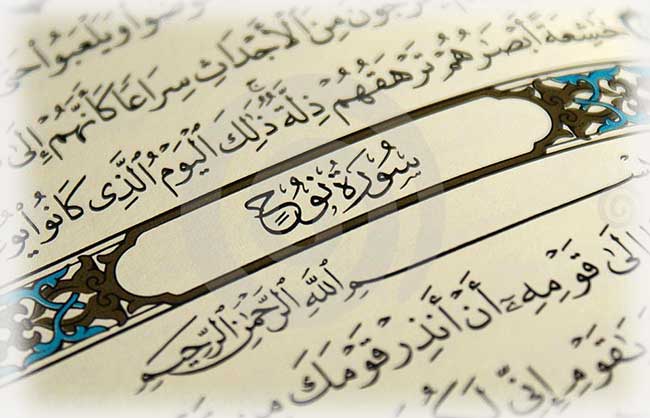 وَيَلْعَبُوا
مِنَ ٱلْأَجْدَاثِ سِرَاعًا كَأَنَّهُمْ إِلَىٰ
خَٰشِعَةً أَبْصَٰرُهُمْ تَرْهَقُهُمْ ذِلَّةٌ ذَٰلِكَ ٱلْيَوْمُ ٱلَّذِى كَانُوا
سُورَةُ نُوحٍ
ٱللَّهِ ٱلرَّحْمَٰنِ ٱلرَّحِيمِ
إِلَىٰ قَوْمِهِۦٓ أَنْ أَنذِرْ قَوْمَكَ مِن
يَٰقَوْمِ إِنِّى